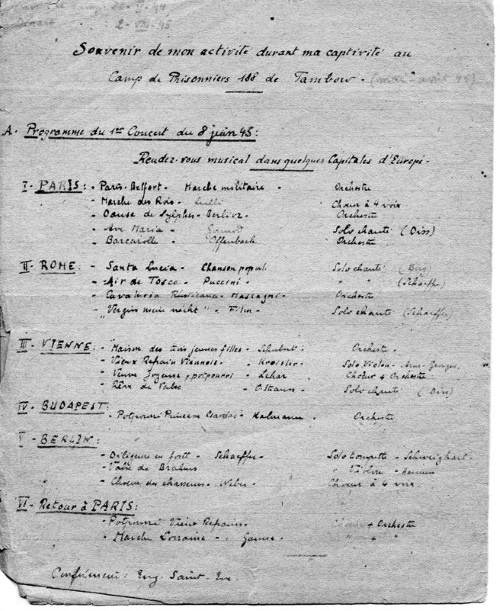 2-VIII-45
Souvenir de mon activité durant ma captivité au
Camp de Prisonniers 188 de Tambow.
A. Programme du 1er Concert du 8 juin 45:
Rendez-vous musical dans quelques Capitales d'Europe.
I- PARIS: - Paris-Belfort - Marche militaire - Orchestre
- Marche des Rois - Lulli Chœur à 4 voix
- Danse de Sylphes - Berlioz - Orchestre
- Ave Maria - Gounod Solo chanté (Diss)
- Barcarolle - Offenbach Orchestre
II- ROME: - Santa Lucia - Chanson popul. Solo chanté
- Air de Tosca - Puccini - " " (Schaeffer)
- Cavaleria Rusticana - Mascagni - Orchestre
- "Vergiss mein nicht" - Film - Solo chanté (Schaeffer)
III- VIENNE: - Maison des trois jeunes filles - Schubert - Orchestre -
- Vieux Refrain Viennois - Kreisler - Solo Violon -
- Veuve Joyeuse potpourri - Lehar - Chœur + Orchestre -
- Rêve de Valse - O. Straus - Solo chanté (Diss)
IV- BUDAPEST: - Potpourri Princesse Csardas - Kalmann - Orchestre
V- BERLIN: - en forêt - Schaeffer - Solo trompette - Schweighart -
- Valse de Brahms
- Chœur des chasseurs - Weber - Chœur à 4 voix
VI- Retour à PARIS:
- Potpourri Vieux Refrains - + Orchestre
- Marche Lorraine - Ganne - " + "
Conférencier: Eug. Saint-